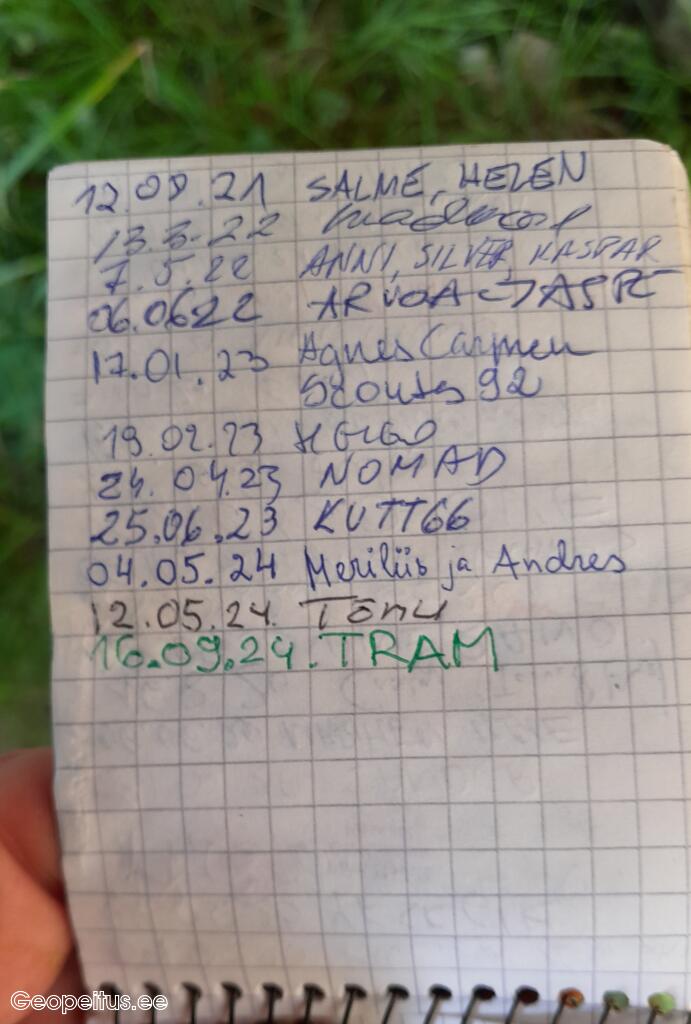 12.08.21 SALME, HELEN
13.3.22
7.5.22 ANNI, SILVER, KASPAR
06.0622 ARVOA
17.01.23 Agnes Carmen
92
19.02.23
24.04.23 NOMAD
25.06.23 KUTT66
04.05.24 Meriliis ja Andres
12.05.24. Tõnu
16.09.24. TRAM
Geopeitus.ee